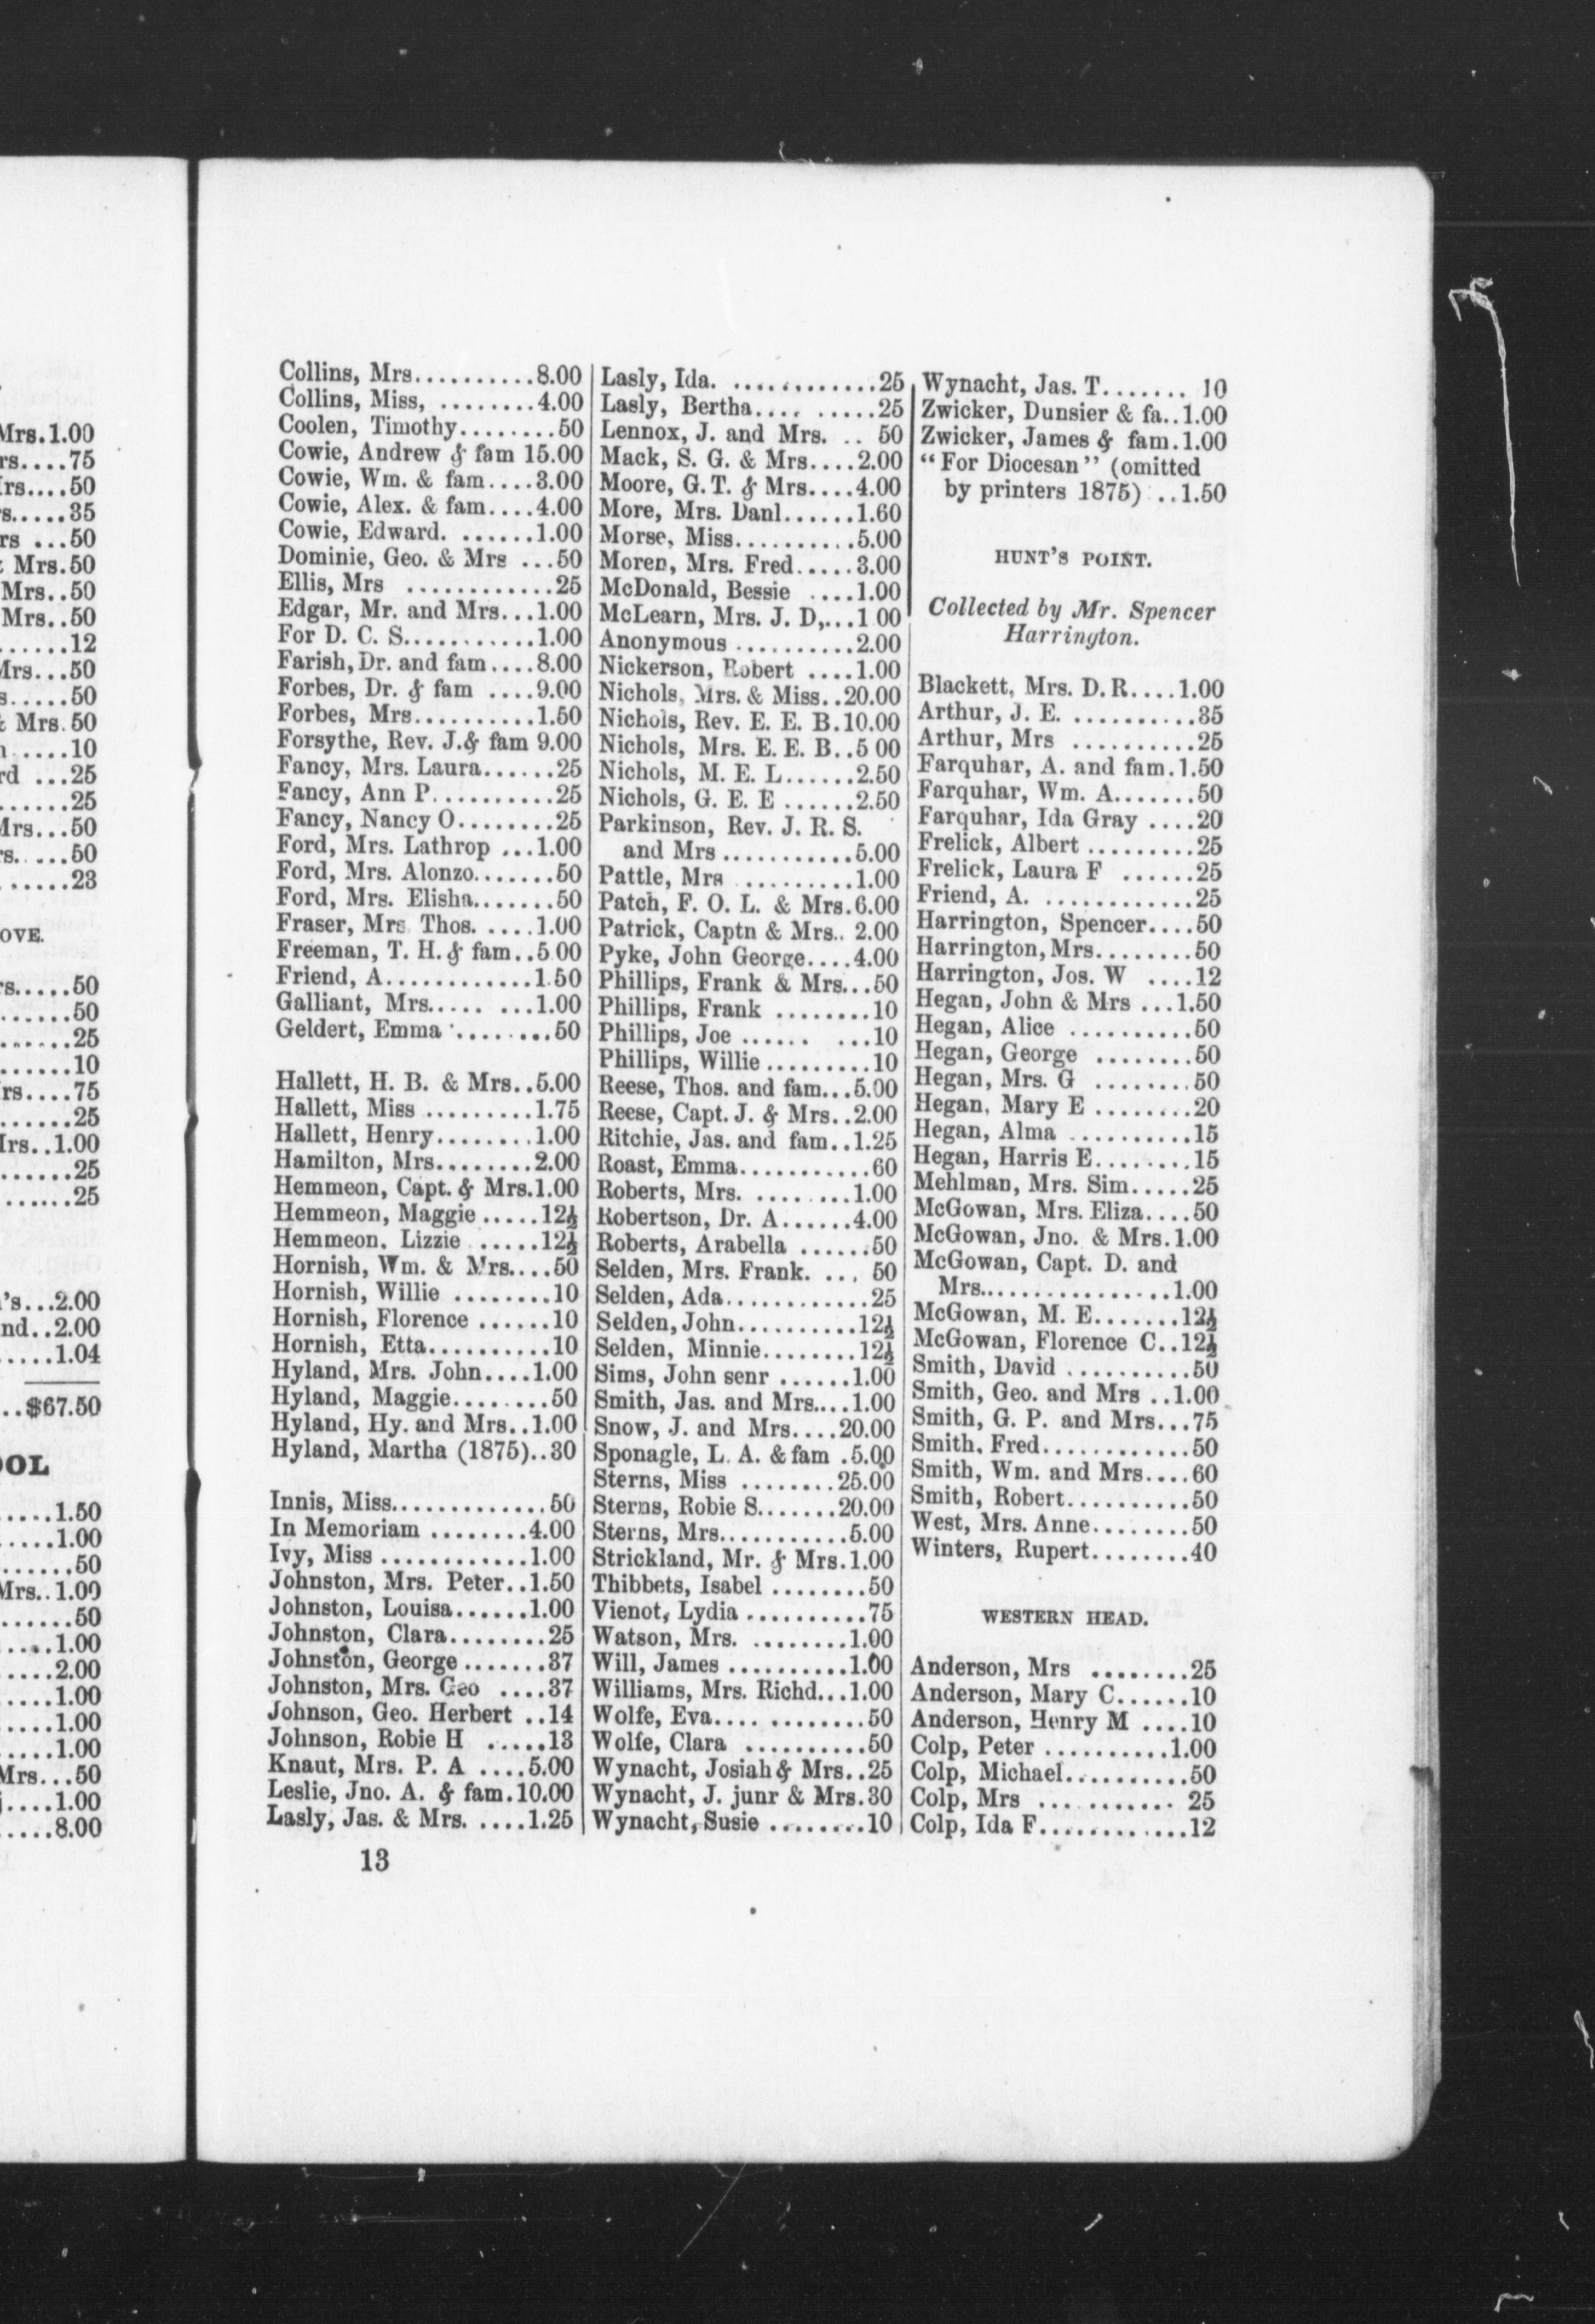 Mrs.1.00
rs....75
Irs....50
s.....35
rs ...50
Mrs.50
Mrs..50
Mrs..50
......12
Mrs...50
s.....50
Mrs.50
.....10
rd ...25
......25
Mrs...50
rs.....50
......23
OVE.
rs.....50
......50
......25
......10
rs....75
......25
Irs..1.00
......25
......25
's...2.00
nd..2.00
.....1.04
..$67.50
OOL
.....1.50
.....1.00
......50
Mrs..1.00
......50
.....1.00
.....2.00
.....1.00
.....1.00
.....1.00
Mrs...50
....1.00
.....8.00
Collins, Mrs..........8.00
Collins, Miss, ........4.00
Coolen, Timothy........50
Cowie, Andrew & fam 15.00
Cowie, Wm. & fam....3.00
Cowie, Alex. & fam....4.00
Cowie, Edward. .......1.00
Dominie, Geo. & Mrs ...50
Ellis, Mrs ............25
Edgar, Mr. and Mrs...1.00
For D. C. S...........1.00
Farish, Dr. and fam....8.00
Forbes, Dr. & fam ....9.00
Forbes, Mrs..........1.50
Forsythe, Rev. J.& fam 9.00
Fancy, Mrs. Laura......25
Fancy, Ann P..........25
Fancy, Nancy O........25
Ford, Mrs. Lathrop ...1.00
Ford, Mrs. Alonzo.......50
Ford, Mrs. Elisha.......50
Fraser, Mrs Thos. .....1.00
Freeman, T. H. & fam..5.00
Friend, A............1.50
Galliant, Mrs..... ...1.00
Geldert, Emma ........50
Hallett, H. B. & Mrs..5.00
Hallett, Miss .........1.75
Hallett, Henry........1.00
Hamilton, Mrs........2.00
Hemmeon, Capt. & Mrs.1.00
Hemmeon, Maggie .....12½
Hemmeon, Lizzie .....12½
Hornish, Wm. & Mrs....50
Hornish, Willie ........10
Hornish, Florence ......10
Hornish, Etta..........10
Hyland, Mrs. John....1.00
Hyland, Maggie........50
Hyland, Hy. and Mrs..1.00
Hyland, Martha (1875)..30
Innis, Miss.............50
In Memoriam ........4.00
Ivy, Miss ............1.00
Johnston, Mrs. Peter..1.50
Johnston, Louisa......1.00
Johnston, Clara........25
Johnston, George.......37
Johnston, Mrs. Geo ....37
Johnson, Geo. Herbert ..14
Johnson, Robie H .....13
Knaut, Mrs. P. A ....5.00
Leslie, Jno. A. & fam.10.00
Lasly, Jas. & Mrs. ....1.25
13
Lasly, Ida. ............25
Lasly, Bertha.... .....25
Lennox, J. and Mrs. .. 50
Mack, S. G. & Mrs....2.00
Moore, G. T. & Mrs....4.00
More, Mrs. Danl......1.60
Morse, Miss..........5.00
Moren, Mrs. Fred.....3.00
McDonald, Bessie ....1.00
McLearn, Mrs. J. D,...1 00
Anonymous ..........2.00
Nickerson, Robert ....1.00
Nichols, Mrs. & Miss..20.00
Nichols, Rev. E. E. B.10.00
Nichols, Mrs. E. E. B..5 00
Nichols, M. E. L......2.50
Nichols, G. E. E ......2.50
Parkinson, Rev. J. R. S.
and Mrs ...........5.00
Pattle, Mrs .........1.00
Patch, F. O. L. & Mrs.6.00
Patrick, Captn & Mrs.. 2.00
Pyke, John George....4.00
Phillips, Frank & Mrs...50
Phillips, Frank ........10
Phillips, Joe ...... ...10
Phillips, Willie.........10
Reese, Thos. and fam...5.00
Reese, Capt. J. & Mrs..2.00
Ritchie, Jas. and fam..1.25
Roast, Emma...........60
Roberts, Mrs. ........1.00
Robertson, Dr. A......4.00
Roberts, Arabella ......50
Selden, Mrs. Frank. ... 50
Selden, Ada............25
Selden, John..........12½
Selden, Minnie........12½
Sims, John senr ......1.00
Smith, Jas. and Mrs....1.00
Snow, J. and Mrs....20.00
Sponagle, L. A. & fam .5.00
Sterns, Miss ........25.00
Sterns, Robie S.......20.00
Sterns, Mrs...........5.00
Strickland, Mr. & Mrs.1.00
Thibbets, Isabel ........50
Vienot, Lydia ..........75
Watson, Mrs. ........1.00
Will, James ..........1.00
Williams, Mrs. Richd...1.00
Wolfe, Eva.... ........50
Wolfe, Clara ..........50
Wynacht, Josiah & Mrs..25
Wynacht, J. junr & Mrs.30
Wynacht, Susie ........10
Wynacht, Jas. T....... 10
Zwicker, Dunsier & fa..1.00
Zwicker, James & fam.1.00
“For Diocesan” (omitted
by printers 1875) ..1.50
HUNT'S POINT.
Collected by Mr. Spencer
Harrington.
Blackett, Mrs. D. R....1.00
Arthur, J. E. ..........35
Arthur, Mrs ..........25
Farquhar, A. and fam.1.50
Farquhar, Wm. A.......50
Farquhar, Ida Gray ....20
Frelick, Albert .........25
Frelick, Laura F ......25
Friend, A. ............25
Harrington, Spencer....50
Harrington, Mrs........50
Harrington, Jos. W ....12
Hegan, John & Mrs ...1.50
Hegan, Alice ..........50
Hegan, George ........50
Hegan, Mrs. G ........50
Hegan, Mary E ........20
Hegan, Alma ..........15
Hegan, Harris E........15
Mehlman, Mrs. Sim.....25
McGowan, Mrs. Eliza....50
McGowan, Jno. & Mrs.1.00
McGowan, Capt. D. and
Mrs................1.00
McGowan, M. E.......12½
McGowan, Florence C..12½
Smith, David ..........50
Smith, Geo. and Mrs ..1.00
Smith, G. P. and Mrs...75
Smith, Fred............50
Smith, Wm. and Mrs....60
Smith, Robert..........50
West, Mrs. Anne........50
Winters, Rupert........40
WESTERN HEAD.
Anderson, Mrs ........25
Anderson, Mary C......10
Anderson, Henry M ....10
Colp, Peter ..........1.00
Colp, Michael..........50
Colp, Mrs ............ 25
Colp, Ida F............12